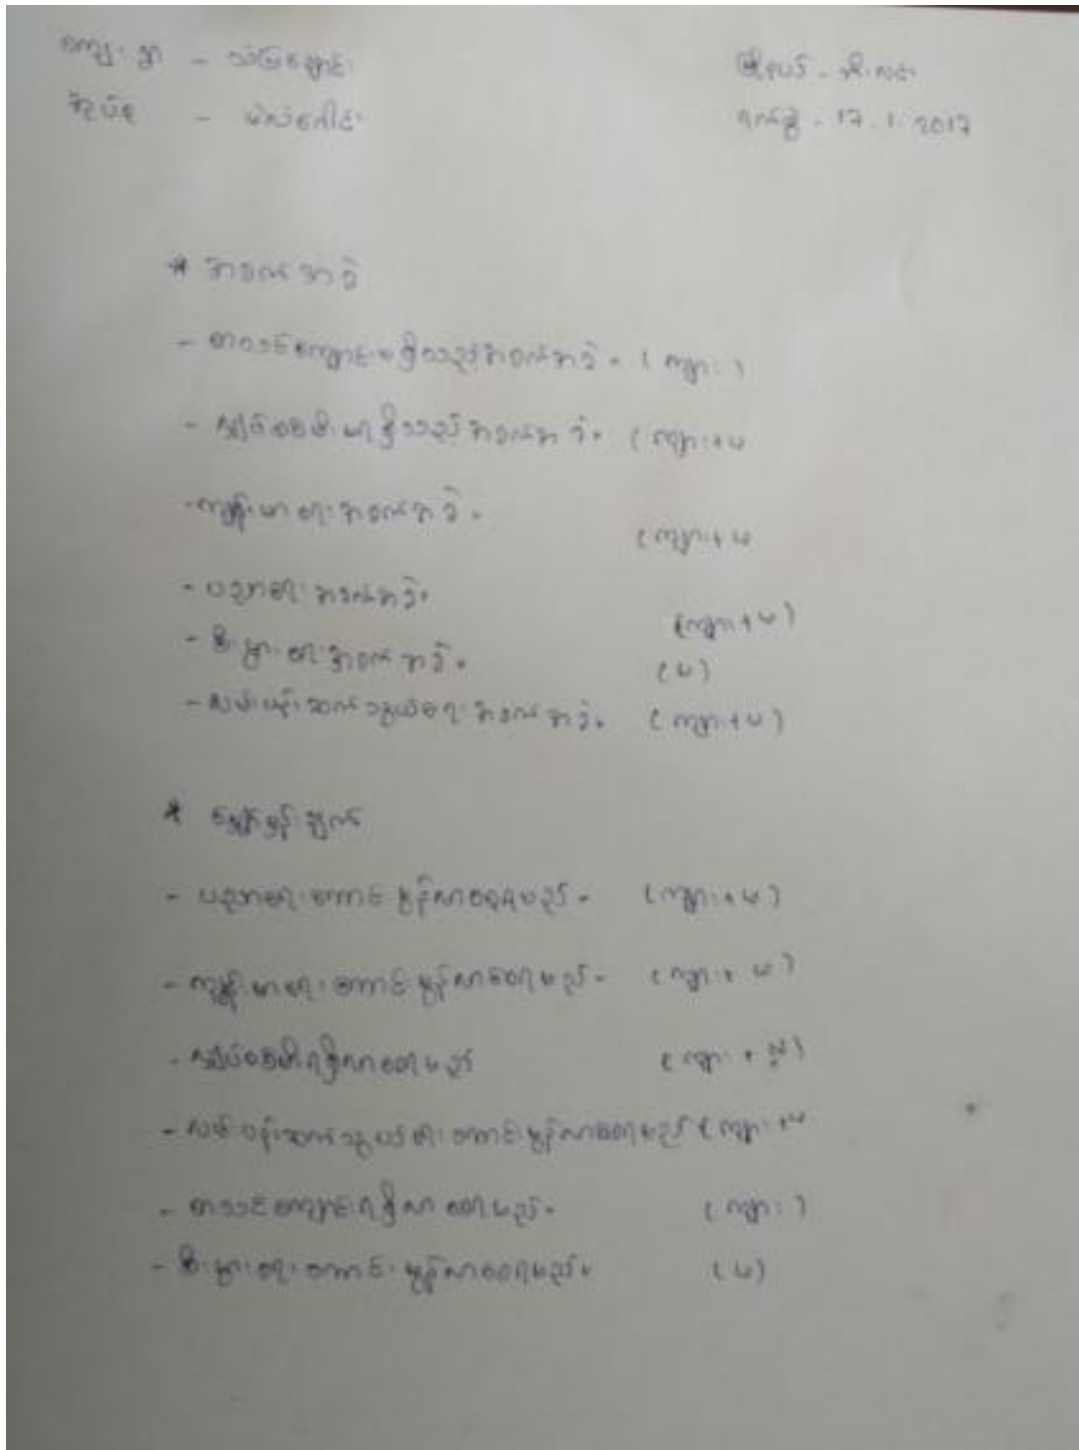 ကျေးရွာ - သံဖြူချောင်း မြို့နယ် - သီပေါ
အုပ်စု - ရက်စွဲ - 17.1.2017
* အခက်အခဲ
- စာသင်ကျောင်းမရှိသည့်အခက်အခဲ။ (ကျား)
- လျှပ်စစ်မီးမရရှိသည့်အခက်အခဲ။ (ကျား+မ
- ကျန်းမာရေးအခက်အခဲ။ (ကျား+မ
- ပညာရေးအခက်အခဲ။ (ကျား+မ)
- စီးပွားရေးအခက်အခဲ။ (မ)
- လမ်းပန်းဆက်သွယ်ရေးအခက်အခဲ။ (ကျား+မ)
* မျှော်မှန်းချက်
- ပညာရေးကောင်းမွန်လာစေရမည်။ (ကျား+မ)
- ကျန်းမာရေးကောင်းမွန်လာစေရမည်။ (ကျား+မ)
- လျှပ်စစ်မီးရရှိလာစေရမည် (ကျား+မ)
- လမ်းပန်းဆက်သွယ်ရေးကောင်းမွန်လာစေရမည် (ကျား+မ
- စာသင်ကျောင်းရရှိလာစေရမည်။ (ကျား)
- စီးပွားရေးကောင်းမွန်လာစေရမည်။ (မ)